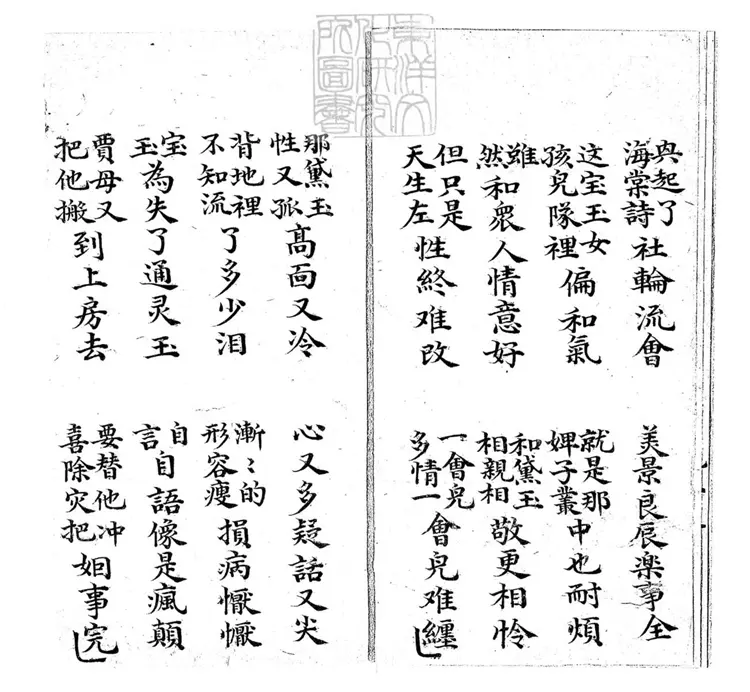 興起了海棠詩社輪流會
美景良辰楽事全
这宝玉女孩兒隊裡偏和氣
就是那婢子叢中也耐煩
雖然和衆人情意好
和黛玉相親相敬更相怜
但只是天生左性終难改
一會皃多情一會皃难纏
那黛玉性又孤高面又冷
心又多疑話又尖
背地裡不知流了多少泪
漸〻的形容瘦損病懨懨
宝玉為失了通灵玉
自言自語像是瘋顛
賈母又把他搬到上房去
要替他冲喜除灾把姻事完
東洋文化研究所圖書